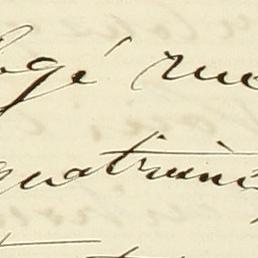 logé rue
quatrième